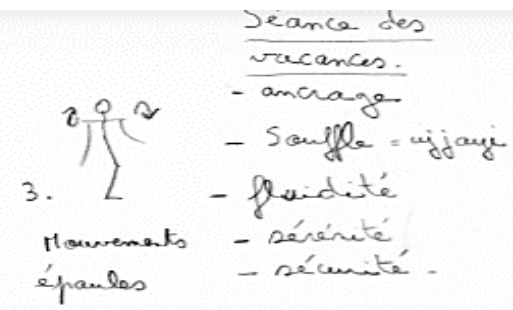 Séance des
vacances.
- ancrage
- Souffle = ujjayi
- fluidité
- sérénité
- sécurité.
3.
Mouvements
épaules